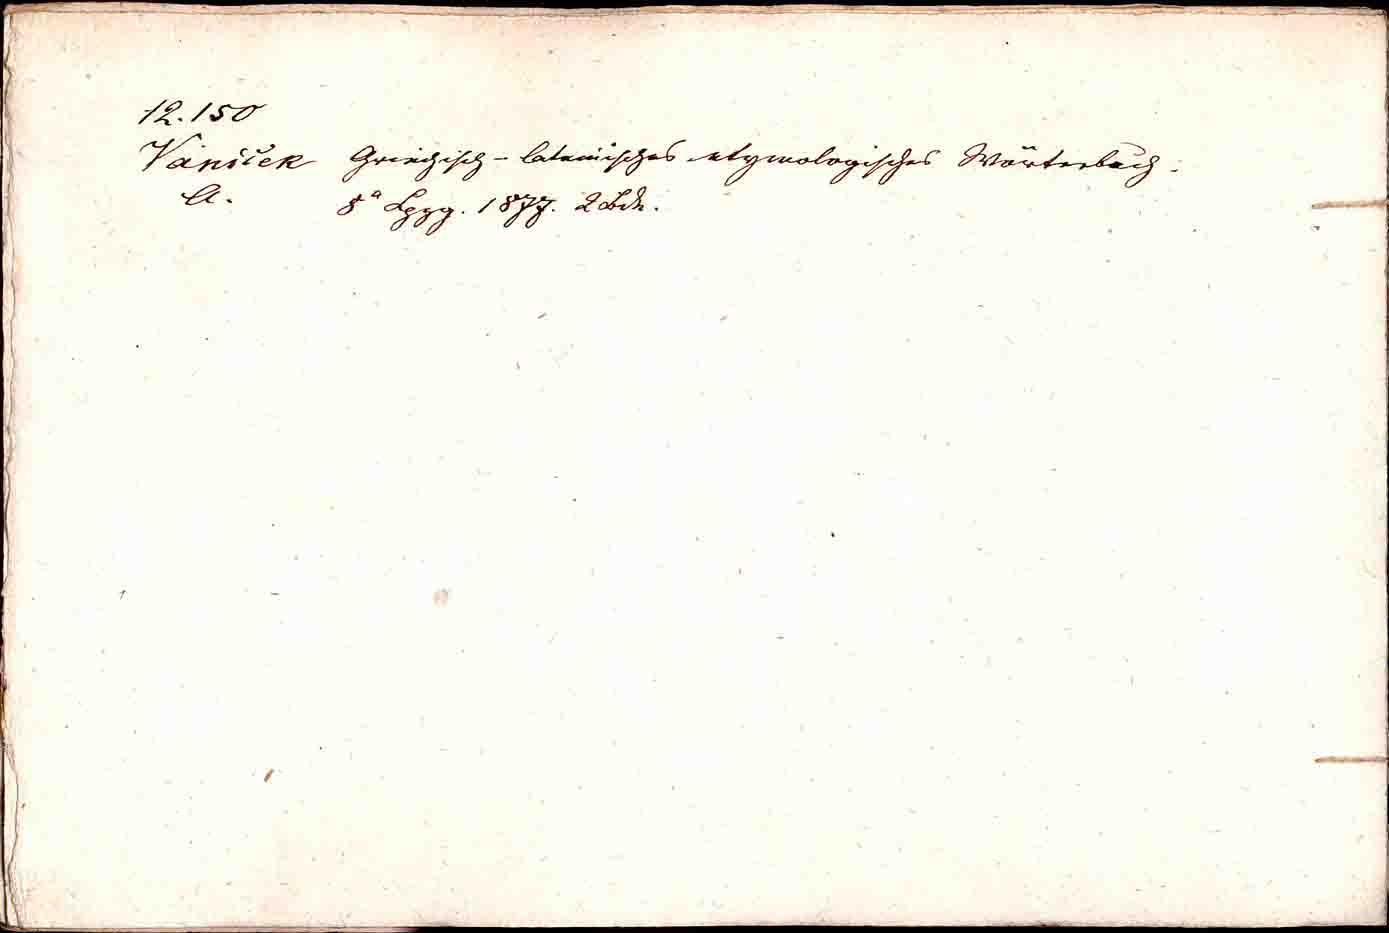 12.150
Vaníček Griechisch-lateinisches etymologisches Wörterbuch.
A. 8° Lpzg. 1877. 2 Bde.